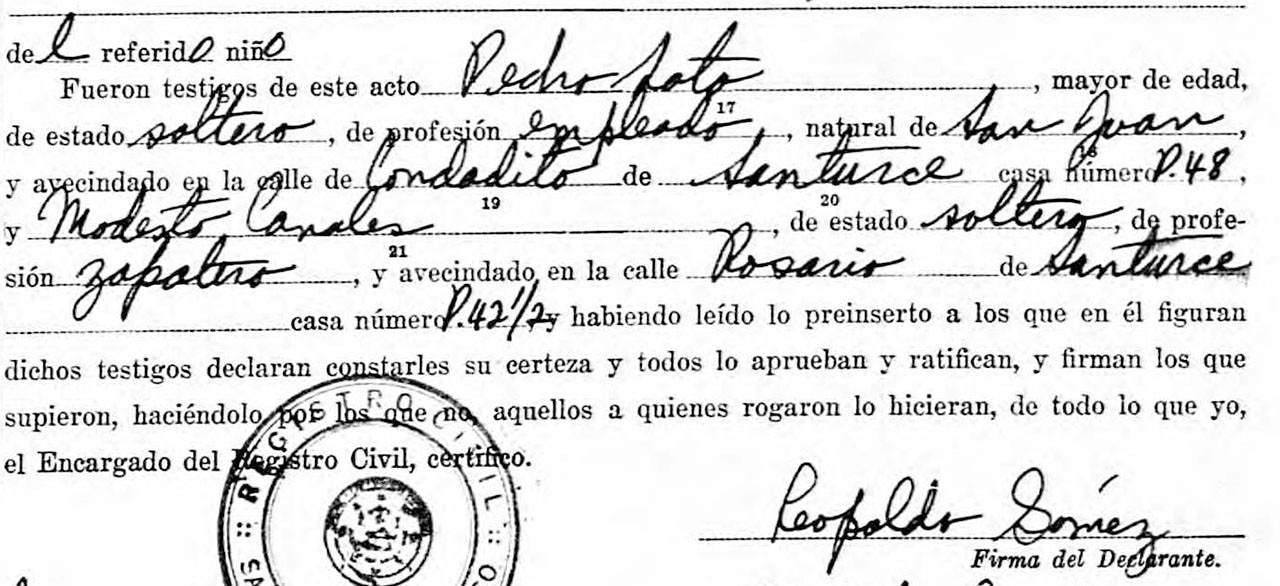 del referido niño
Fueron testigos de este acto Pedro Soto, mayor de edad,
de estado soltero, de profesión empleado 17, natural de San Juan,
y avecindado en la calle de Condadito de Santurce casa número 18 P.48,
y Modesto Canales 19, de estado 20 soltero, de profe-
sión zapatero 21, y avecindado en la calle Rosario de Santurce
casa número P.42 1/2 y habiendo leído lo preinserto a los que en él figuran
dichos testigos declaran constarles su certeza y todos lo aprueban y ratifican, y firman los que
supieron, haciéndolo por los que no, aquellos a quienes rogaron lo hicieran, de todo lo que yo,
el Encargado del Registro Civil, certifico.
REGISTRO CIVIL
Leopoldo Gómez
Firma del Declarante.